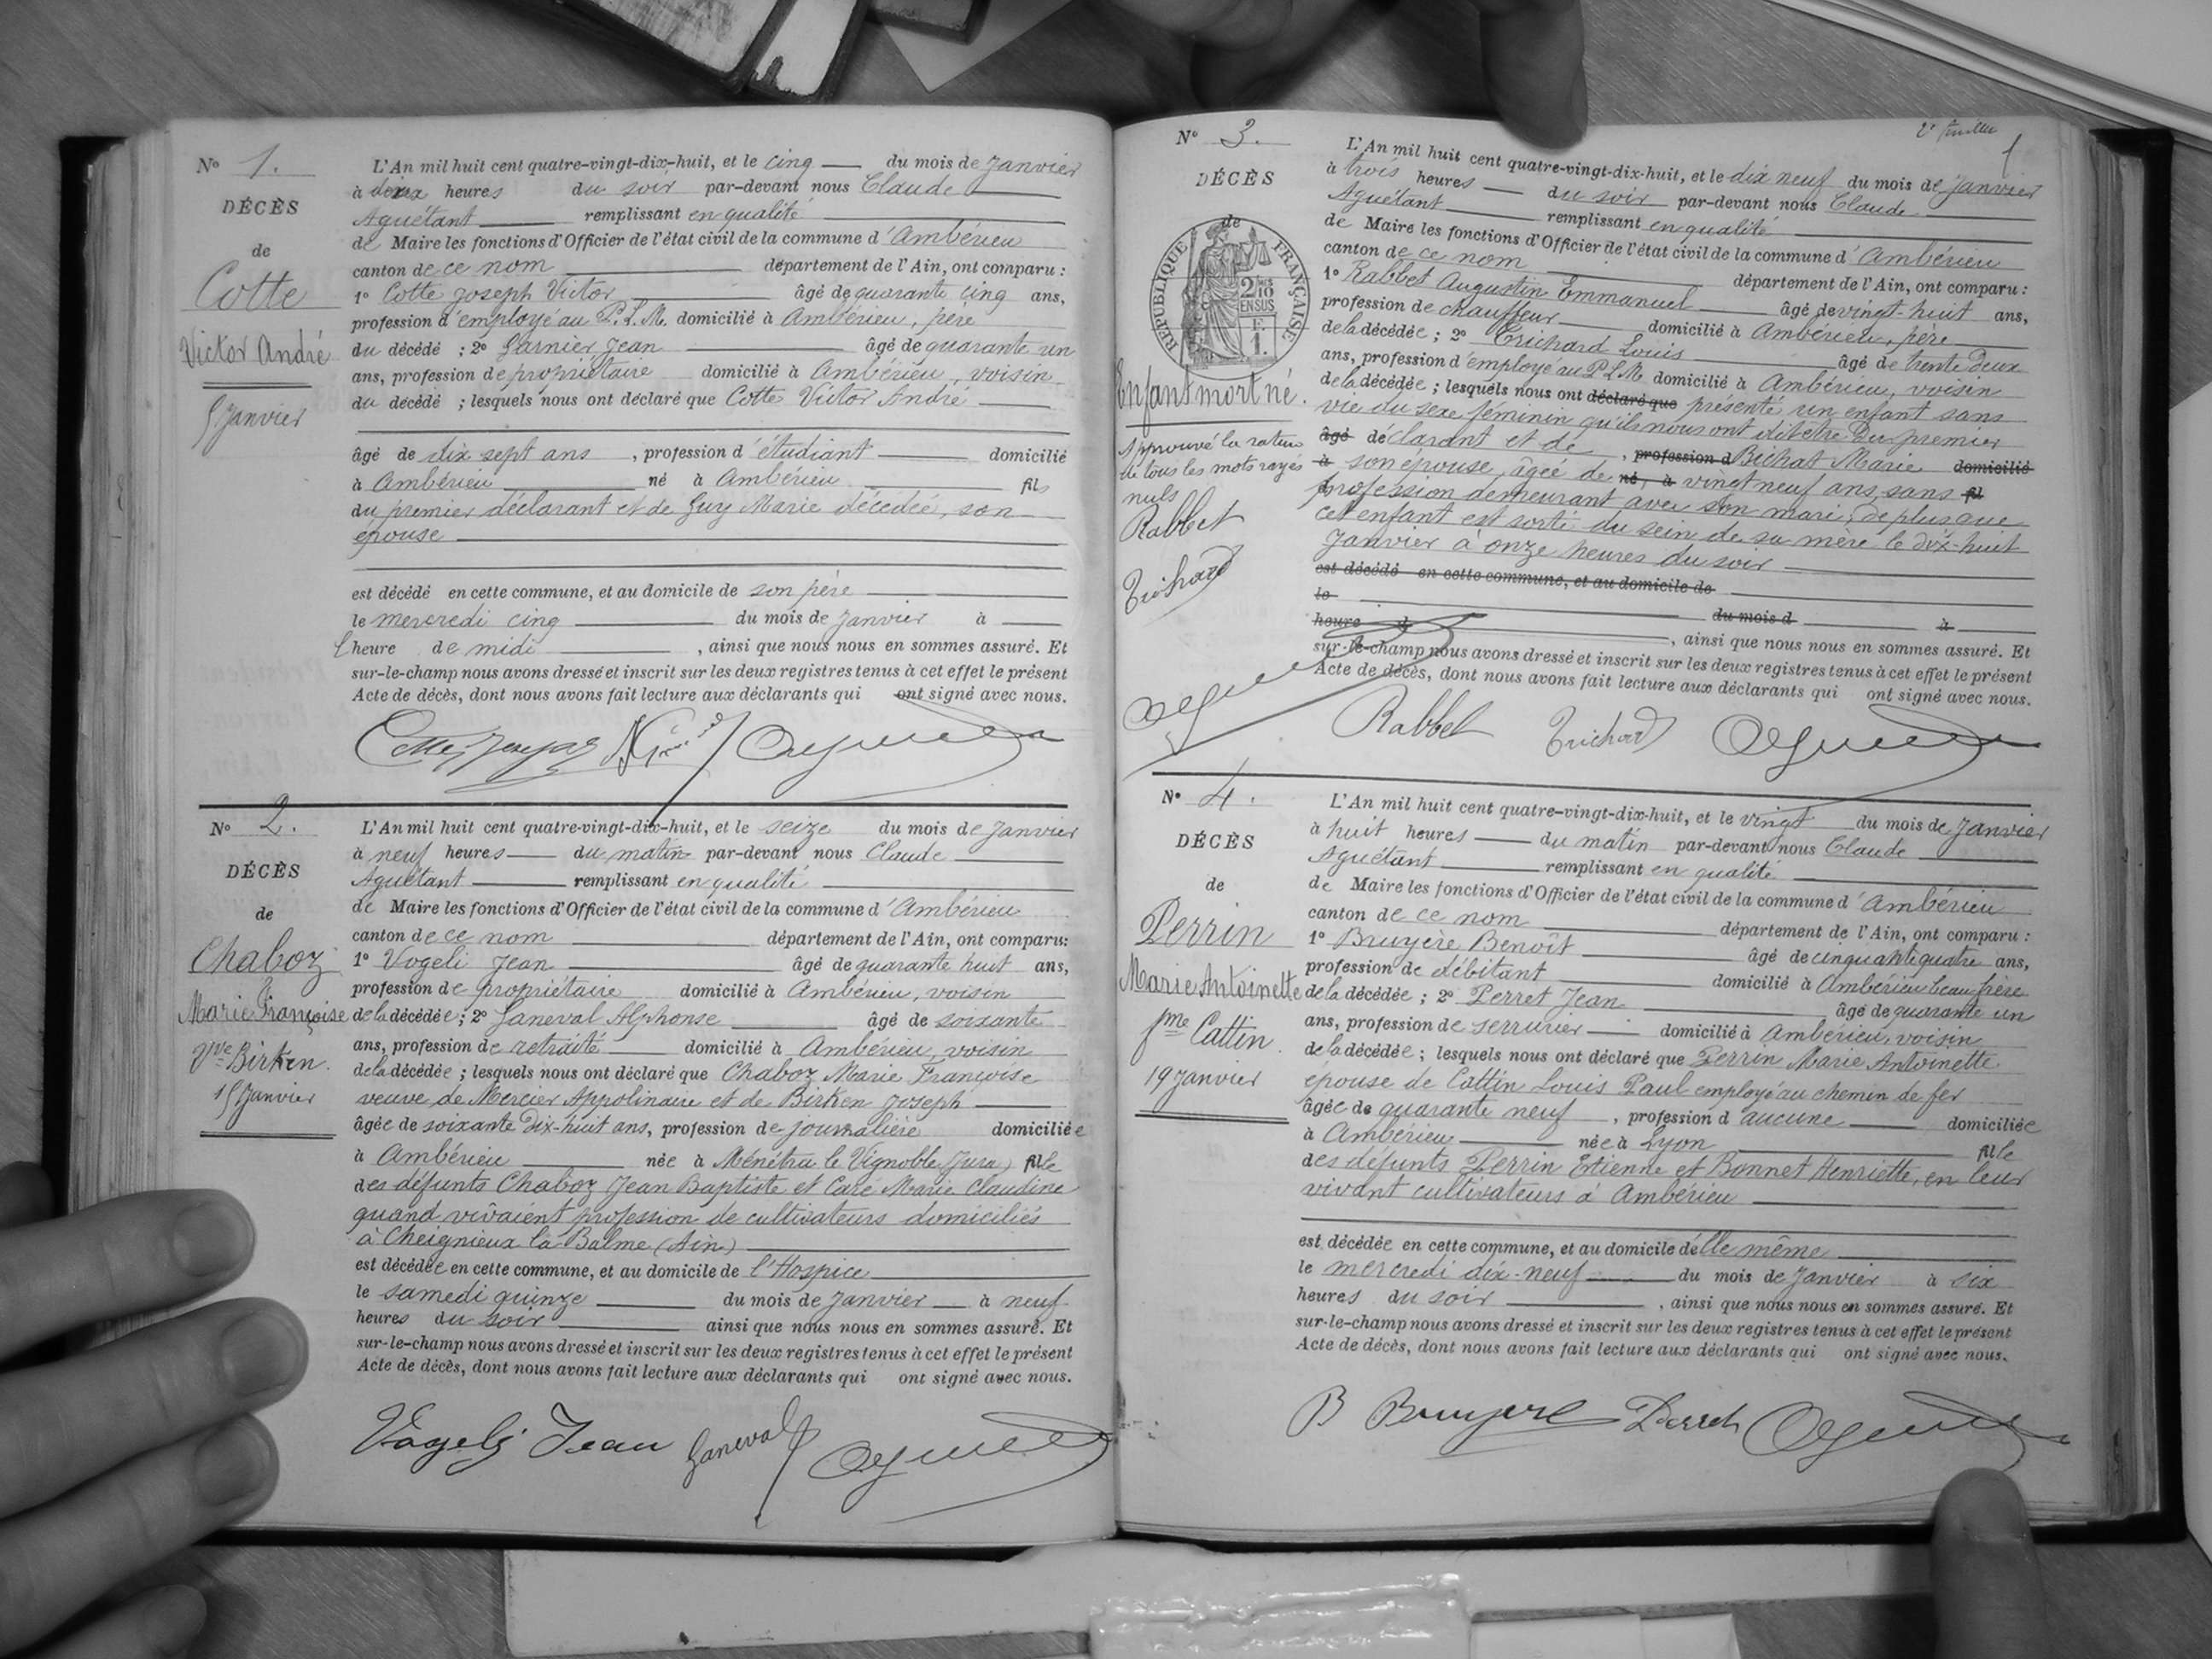 N° 1.
DÉCÈS
de
Cotte
Victor André
5 Janvier
L'An mil huit cent quatre-vingt-dix-huit, et le cinq du mois de Janvier
à deux heures du soir par-devant nous Claude
Aguétant remplissant en qualité
de Maire les fonctions d'Officier de l'état civil de la commune d'Ambérieu
canton de ce nom département de l'Ain, ont comparu :
1° Cotte Joseph Victor âgé de quarante cinq ans,
profession d'employé au P.L.M. domicilié à Ambérieu, père
du décédé ; 2° Garnier Jean âgé de quarante un
ans, profession de propriétaire domicilié à Ambérieu, voisin
du décédé ; lesquels nous ont déclaré que Cotte Victor André
âgé de dix sept ans, profession d'étudiant domicilié
à Ambérieu né à Ambérieu fils
du premier déclarant et de Guy Marie décédée, son
épouse
est décédé en cette commune, et au domicile de son père
le mercredi cinq du mois de Janvier à
l'heure de midi, ainsi que nous nous en sommes assuré. Et
sur-le-champ nous avons dressé et inscrit sur les deux registres tenus à cet effet le présent
Acte de décès, dont nous avons fait lecture aux déclarants qui ont signé avec nous.
N° 2.
DÉCÈS
de
Chaboz
Marie Françoise
Vve Birken.
15 Janvier
L'An mil huit cent quatre-vingt-dix-huit, et le seize du mois de Janvier
à neuf heures du matin par-devant nous Claude
Aguétant remplissant en qualité
de Maire les fonctions d'Officier de l'état civil de la commune d'Ambérieu
canton de ce nom département de l'Ain, ont comparu:
1° Vogeli Jean âgé de quarante huit ans,
profession de propriétaire domicilié à Ambérieu, voisin
de la décédée ; 2° Janeval Alphonse âgé de soixante
ans, profession de retraité domicilié à Ambérieu, voisin
de la décédée ; lesquels nous ont déclaré que Chaboz Marie Françoise
veuve de Mercier Appolinaire et de Birken Joseph
âgée de soixante dix-huit ans, profession de journalière domiciliée
à Ambérieu née à Ménétru le Vignoble (Jura) fille
des défunts Chaboz Jean Baptiste et Caré Marie Claudine
quand vivaient profession de cultivateurs domiciliés
à Cheignieux la Balme (Ain)
est décédée en cette commune, et au domicile de l'Hospice
le samedi quinze du mois de Janvier à neuf
heures du soir ainsi que nous nous en sommes assuré. Et
sur-le-champ nous avons dressé et inscrit sur les deux registres tenus à cet effet le présent
Acte de décès, dont nous avons fait lecture aux déclarants qui ont signé avec nous.
Vogeli Jean Janeval
2e feuillet
1
N° 3.
DÉCÈS
de
RÉPUBLIQUE FRANÇAISE
2/10 EN SUS
F. 1.
Enfant mort né.
Approuvé la rature
de tous les mots rayés
nuls
Rabbet
Trichard
L'An mil huit cent quatre-vingt-dix-huit, et le dix neuf du mois de Janvier
à trois heures du soir par-devant nous Claude
Aguétant remplissant en qualité
de Maire les fonctions d'Officier de l'état civil de la commune d'Ambérieu
canton de ce nom département de l'Ain, ont comparu :
1° Rabbet Augustin Emmanuel âgé de vingt-huit ans,
profession de chauffeur domicilié à Ambérieu, père
de la décédée ; 2° Trichard Louis âgé de trente deux
ans, profession d'employé au P.L.M. domicilié à Ambérieu, voisin
de la décédée ; lesquels nous ont déclaré que présenté un enfant sans
vie du sexe féminin qu'ils nous ont dit être du premier
âgé déclarant et de, profession d Bichat Marie domicilié
à son épouse, âgée de né, à vingt neuf ans, sans fil
profession demeurant avec son mari, de plus que
cet enfant est sorti du sein de sa mère le dix-huit
Janvier à onze heures du soir
est décédé en cette commune, et au domicile de
le du mois d à
heure d, ainsi que nous nous en sommes assuré. Et
sur-le-champ nous avons dressé et inscrit sur les deux registres tenus à cet effet le présent
Acte de décès, dont nous avons fait lecture aux déclarants qui ont signé avec nous.
Rabbet Trichard
N° 4.
DÉCÈS
de
Perrin
Marie Antoinette
fme Cattin
19 Janvier
L'An mil huit cent quatre-vingt-dix-huit, et le vingt du mois de Janvier
à huit heures du matin par-devant nous Claude
Aguétant remplissant en qualité
de Maire les fonctions d'Officier de l'état civil de la commune d'Ambérieu
canton de ce nom département de l'Ain, ont comparu :
1° Bruyère Benoît âgé de cinquante quatre ans,
profession de débitant domicilié à Ambérieu beau frère
de la décédée ; 2° Perret Jean âgé de quarante un
ans, profession de serrurier domicilié à Ambérieu, voisin
de la décédée ; lesquels nous ont déclaré que Perrin Marie Antoinette
épouse de Cattin Louis Paul employé au chemin de fer
âgée de quarante neuf, profession d aucune domiciliée
à Ambérieu née à Lyon fille
des défunts Perrin Etienne et Bonnet Henriette, en leur
vivant cultivateurs à Ambérieu
est décédée en cette commune, et au domicile d'elle même
le mercredi dix-neuf du mois de Janvier à six
heures du soir, ainsi que nous nous en sommes assuré. Et
sur-le-champ nous avons dressé et inscrit sur les deux registres tenus à cet effet le présent
Acte de décès, dont nous avons fait lecture aux déclarants qui ont signé avec nous.
B Bruyere Perret